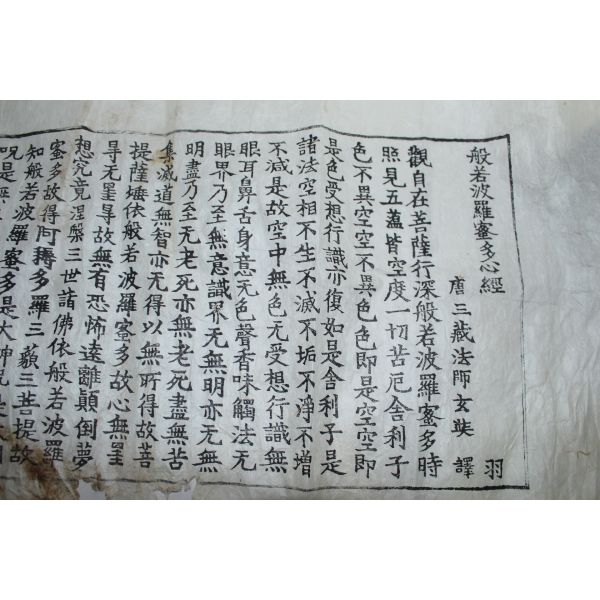 般若波羅蜜多心經
唐三藏法師玄奘 譯 羽
觀自在菩薩行深般若波羅蜜多時
照見五蓋皆空度一切苦厄舍利子
色不異空空不異色色即是空空即
是色受想行識亦復如是舍利子是
諸法空相不生不滅不垢不淨不增
不减是故空中無色无受想行識無
眼耳鼻舌身意无色聲香味觸法无
眼界乃至無意識界无無明亦无無
明盡乃至无老死亦無老死盡無苦
集滅道無智亦无得以無所得故菩
提薩埵依般若波羅蜜多故心無罣
导无罣导故無有恐怖遠離顛倒夢
想究竟涅槃三世諸佛依般若波羅
蜜多故得阿耨多羅三藐三菩提故
知般若波羅蜜多是大神呪是大明
呪是無